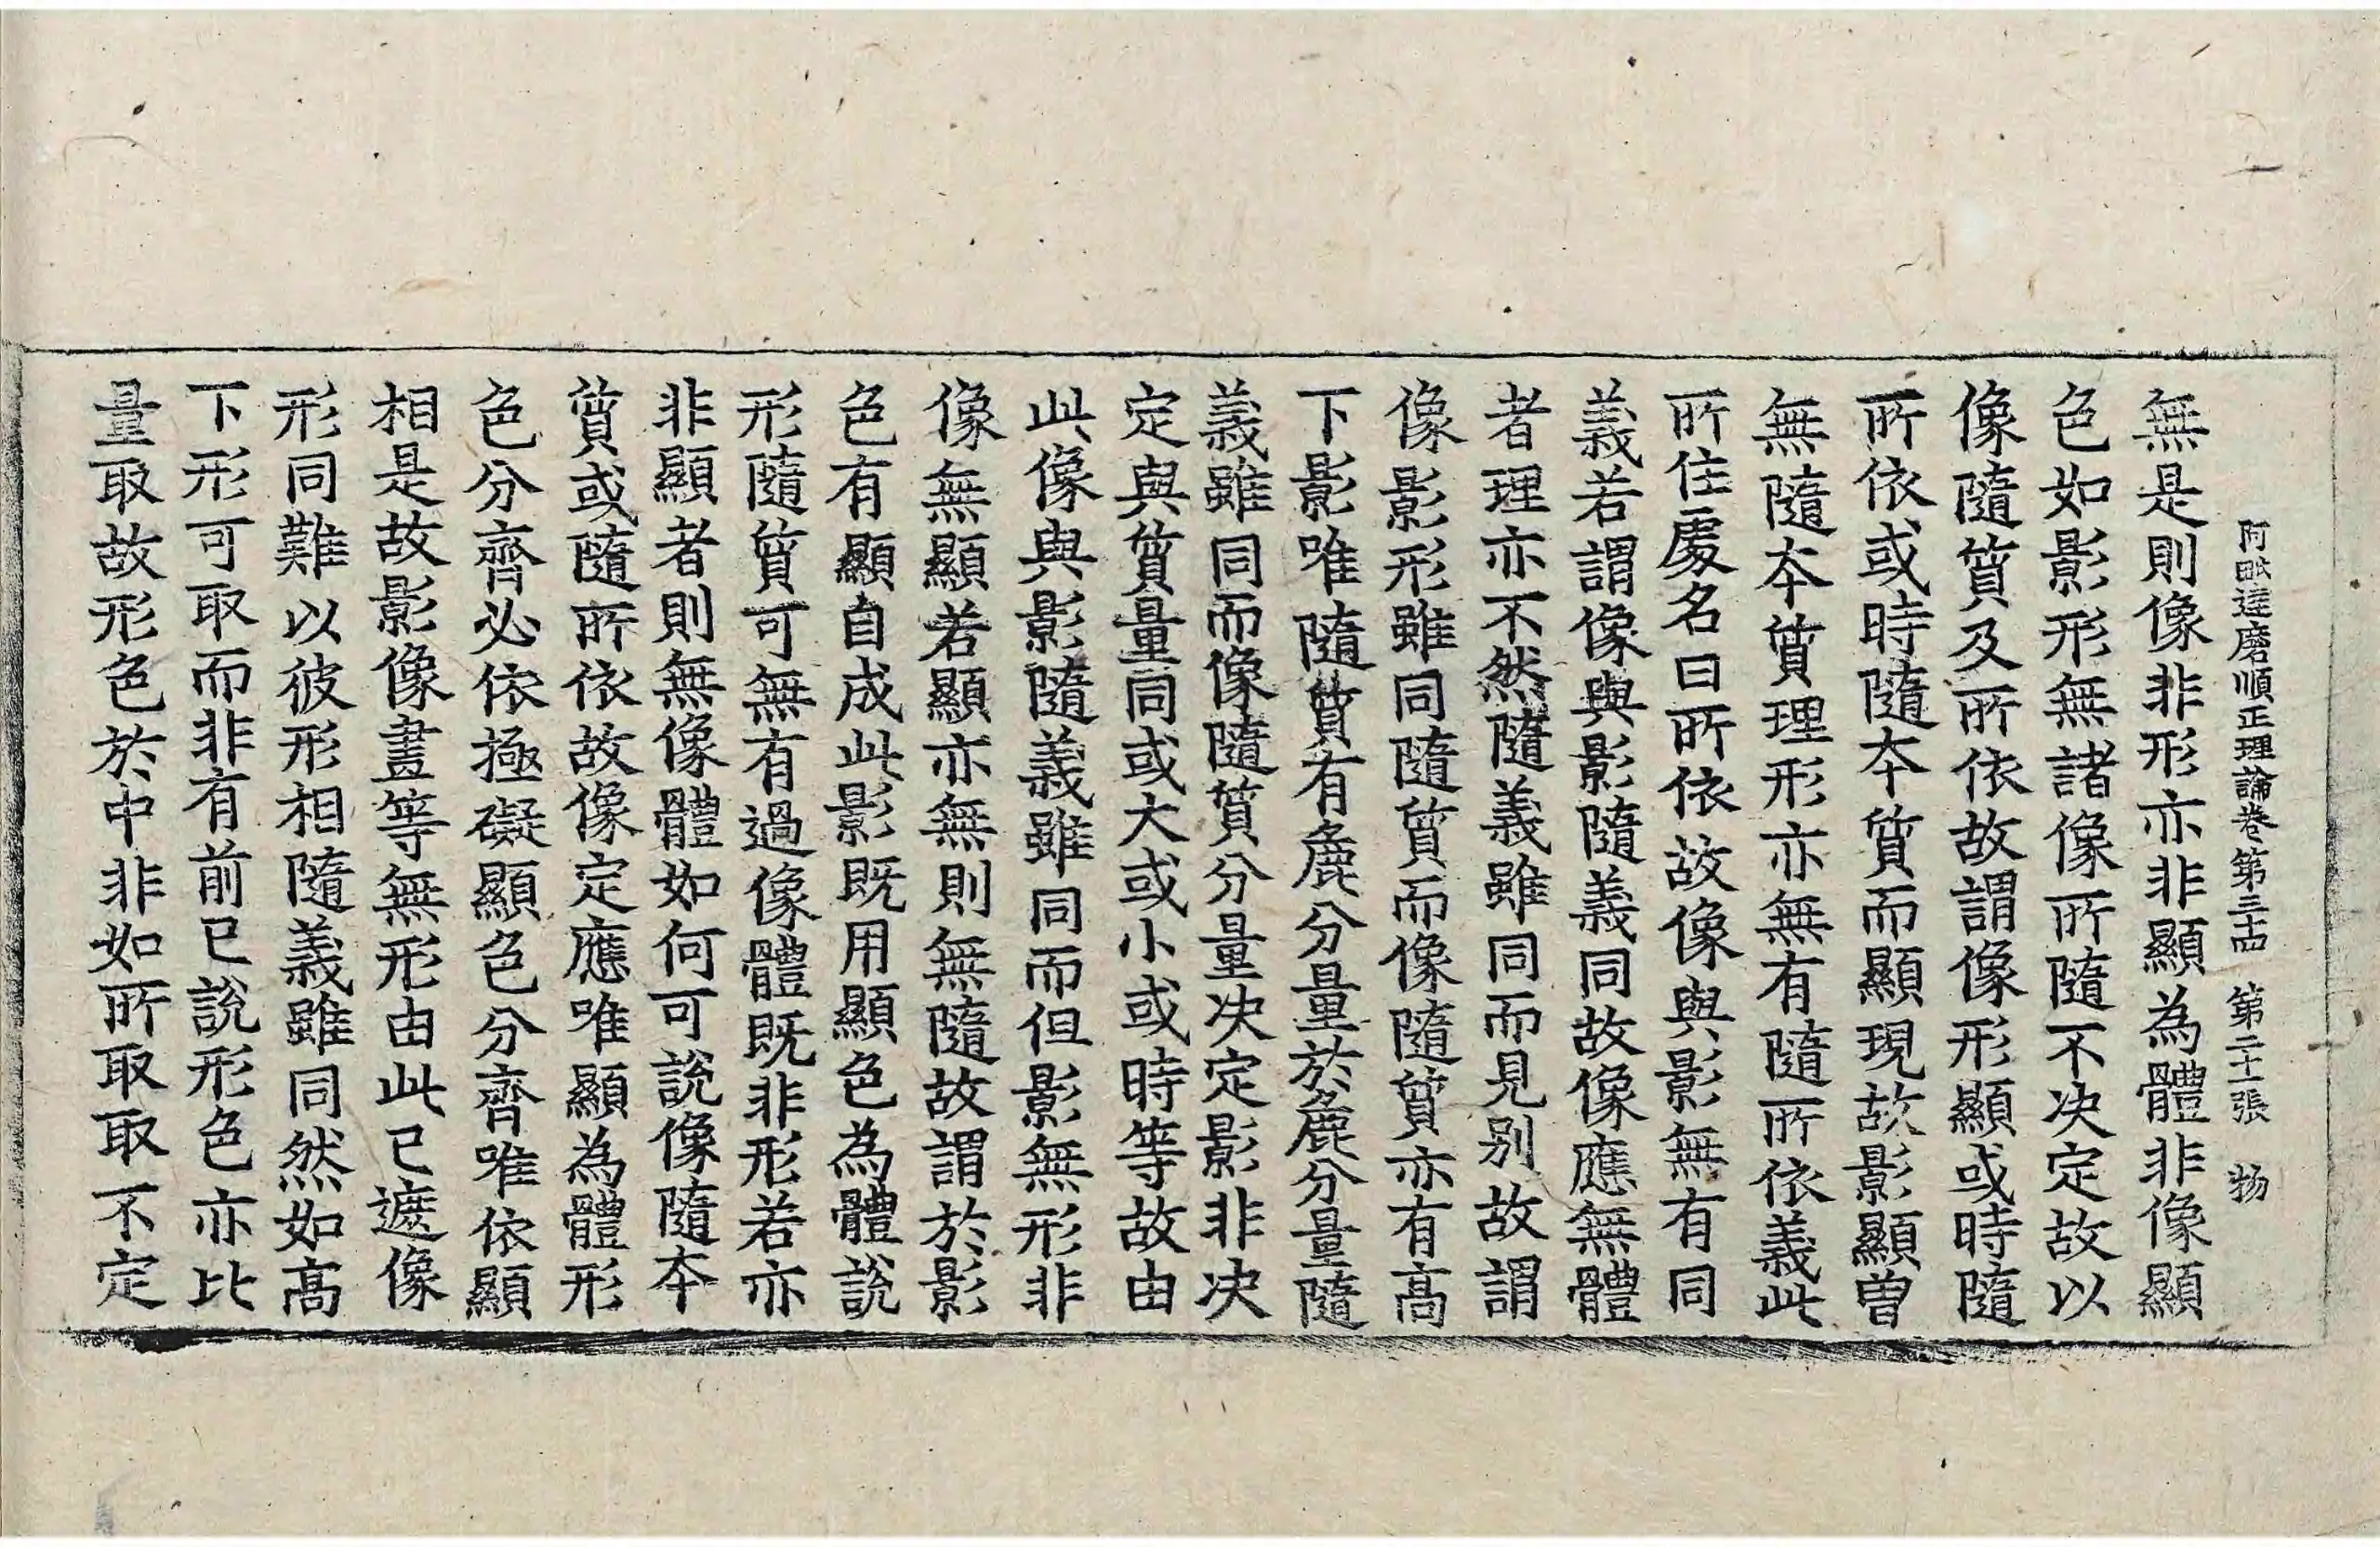 阿毗達磨順正理論卷第三十四　第二十一張　物
無是則像非形亦非顯為體非像顯
色如影形無諸像所隨不决定故以
像隨質及所依故謂像形顯或時隨
所依或時隨本質而顯現故影顯曾
無隨本質理形亦無有隨所依義此
所住處名曰所依故像與影無有同
義若謂像與影隨義同故像應無體
者理亦不然隨義雖同而見别故謂
像影形雖同隨質而像隨質亦有高
下影唯隨質有麁分量於麁分量隨
義雖同而像隨質分量决定影非决
定與質量同或大或小或時等故由
此像與影隨義雖同而但影無形非
像無顯若顯亦無則無隨故謂於影
色有顯自成此影既用顯色為體說
形隨質可無有過像體既非形若亦
非顯者則無像體如何可說像隨本
質或隨所依故像定應唯顯為體形
色分齊必依極礙顯色分齊唯依顯
相是故影像畫等無形由此已遮像
形同難以彼形相隨義雖同然如高
下形可取而非有前已說形色亦比
量取故形色於中非如所取取不定